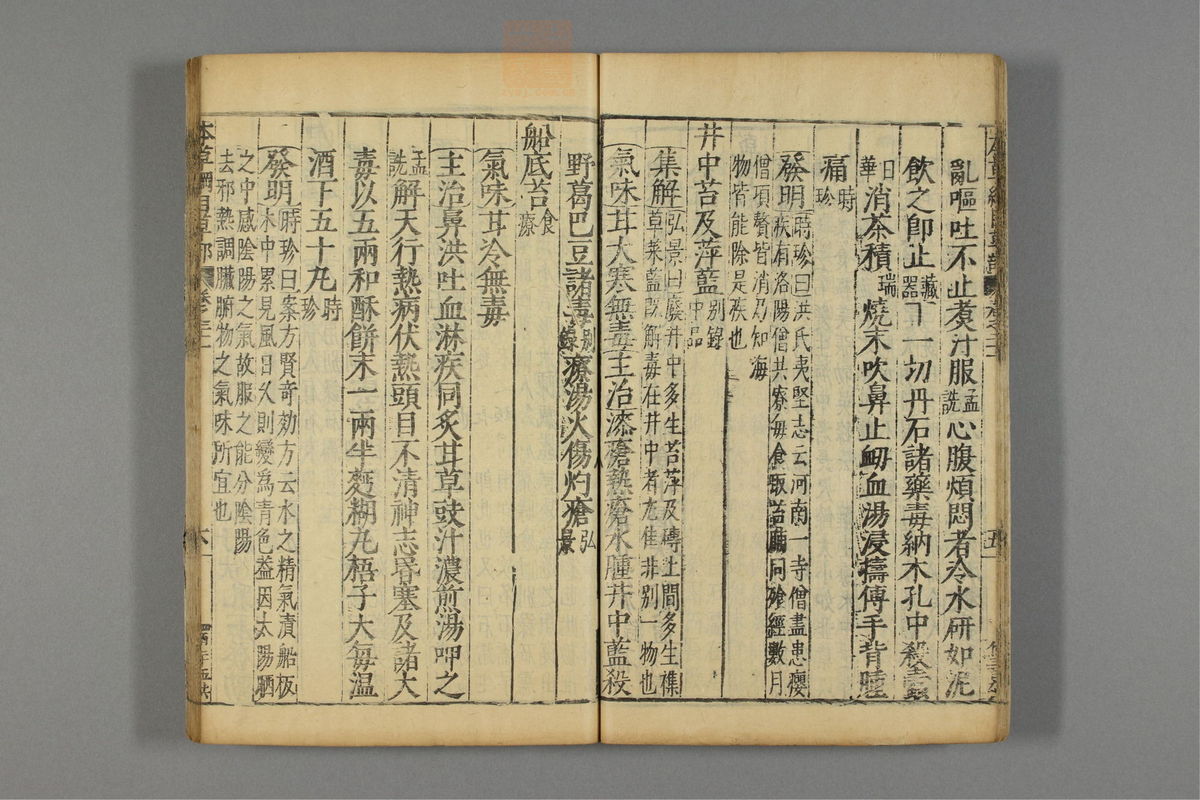 亂嘔吐不止煑汁服孟詵心腹煩悶者冷水研如泥
飲之即止藏器下一切丹石諸藥毒納木孔中殺蠹
日華消茶積瑞燒末吹鼻止衂血湯浸擣傅手背腫
痛時珍
發明時珍曰洪氏夷堅志云河南一寺僧盡患癭
疾有洛陽僧共寮每食取苔脯同飡經數月
僧項贅皆消乃知海
物皆能除是疾也
井中苔及萍藍别錄中品
集解弘景曰廢井中多生苔萍及磚土間多生雜
草菜藍既解毒在井中者尤佳非别一物也
氣味甘大寒無毒主治漆瘡熱瘡水腫井中藍殺
野葛巴豆諸毒别錄療湯火傷灼瘡弘景
船底苔食療
氣味甘冷無毒
主治鼻洪吐血淋疾同炙甘草豉汁濃煎湯呷之
孟詵解天行熱病伏熱頭目不清神志昏塞及諸大
毒以五兩和酥餅末一兩半麪糊丸梧子大每温
酒下五十丸時珍
發明時珍曰案方賢奇効方云水之精氣漬船板
木中累見風日久則變爲青色蓋因太陽晒
之中感陰陽之氣故服之能分陰陽
去邪熱調臟腑物之氣味所宜也
本草綱目
六